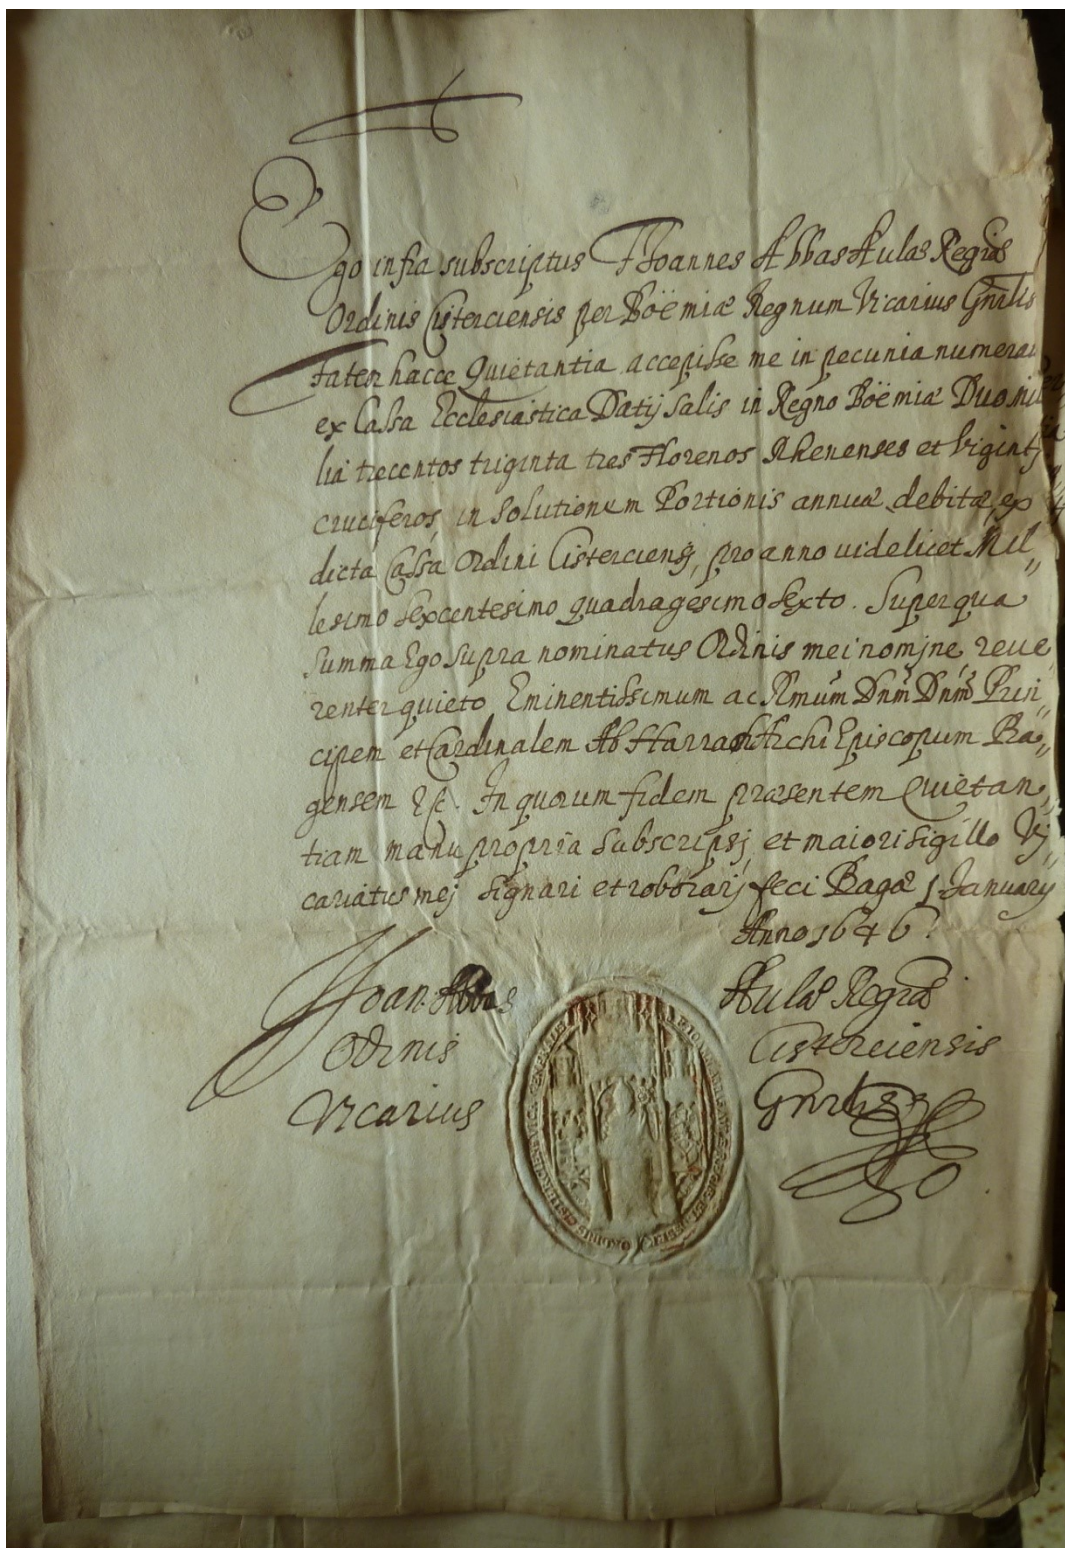 Ego infra subscriptus Joannes Abbas Aulæ Regiæ
Ordinis Cisterciensis per Boëmiæ Regnum Vicarius Gnrlis
Fateor hacce Quietantia accepisse me in pecunia numerata
ex Cassa Ecclesiastica Datij Salis in Regno Boëmiæ Duo mil
lia trecentos triginta tres Florenos Rhenenses et viginti
cruciferos, in Solutionem Portionis annuæ debitæ, ex
dicta Cassa Ordini Cisterciensj, pro anno videlicet Mil„
lesimo Sexcentesimo quadragesimo Sexto. Super qua
Summa Ego Supra nominatus Ordinis mei nomjne reue„
renter quieto Eminentissimum ac Rmum Dnm Dnm Prin„
cipem et Cardinalem Ab Harrach Archi Episcopum Pra„
gensem &c. In quorum fidem præsentem Quietan„
tiam manu propria Subscripsj et maiori Sigillo Vj„
cariatus mej Signari et roborarj feci Pragæ 1 January
Anno 1646.
Joan. Abbas Aulæ Regiæ
Ordinis Cisterciensis
Vicarius Gnrlis